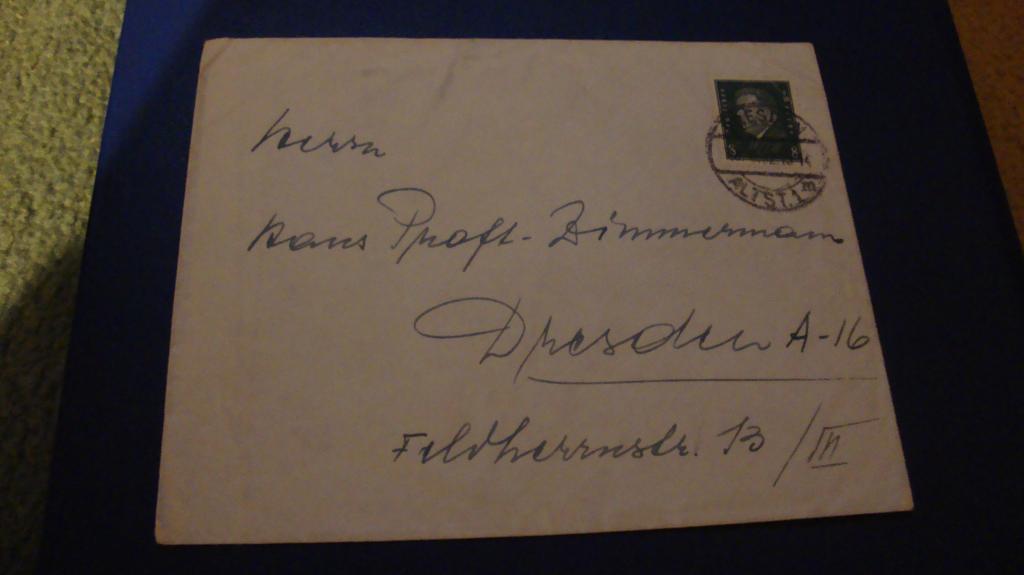 Herrn
Hans Proft-Zimmermann
Dresden A-16
Feldherrnstr. 13/III
8 8
ALTST. 1 m